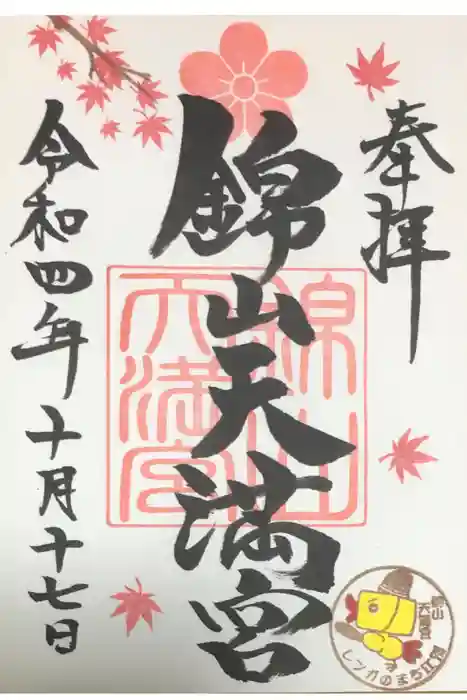 奉拝
錦山天満宮
錦山
天満宮
令和四年十月十七日
錦山
天満宮
レンガのまち江別